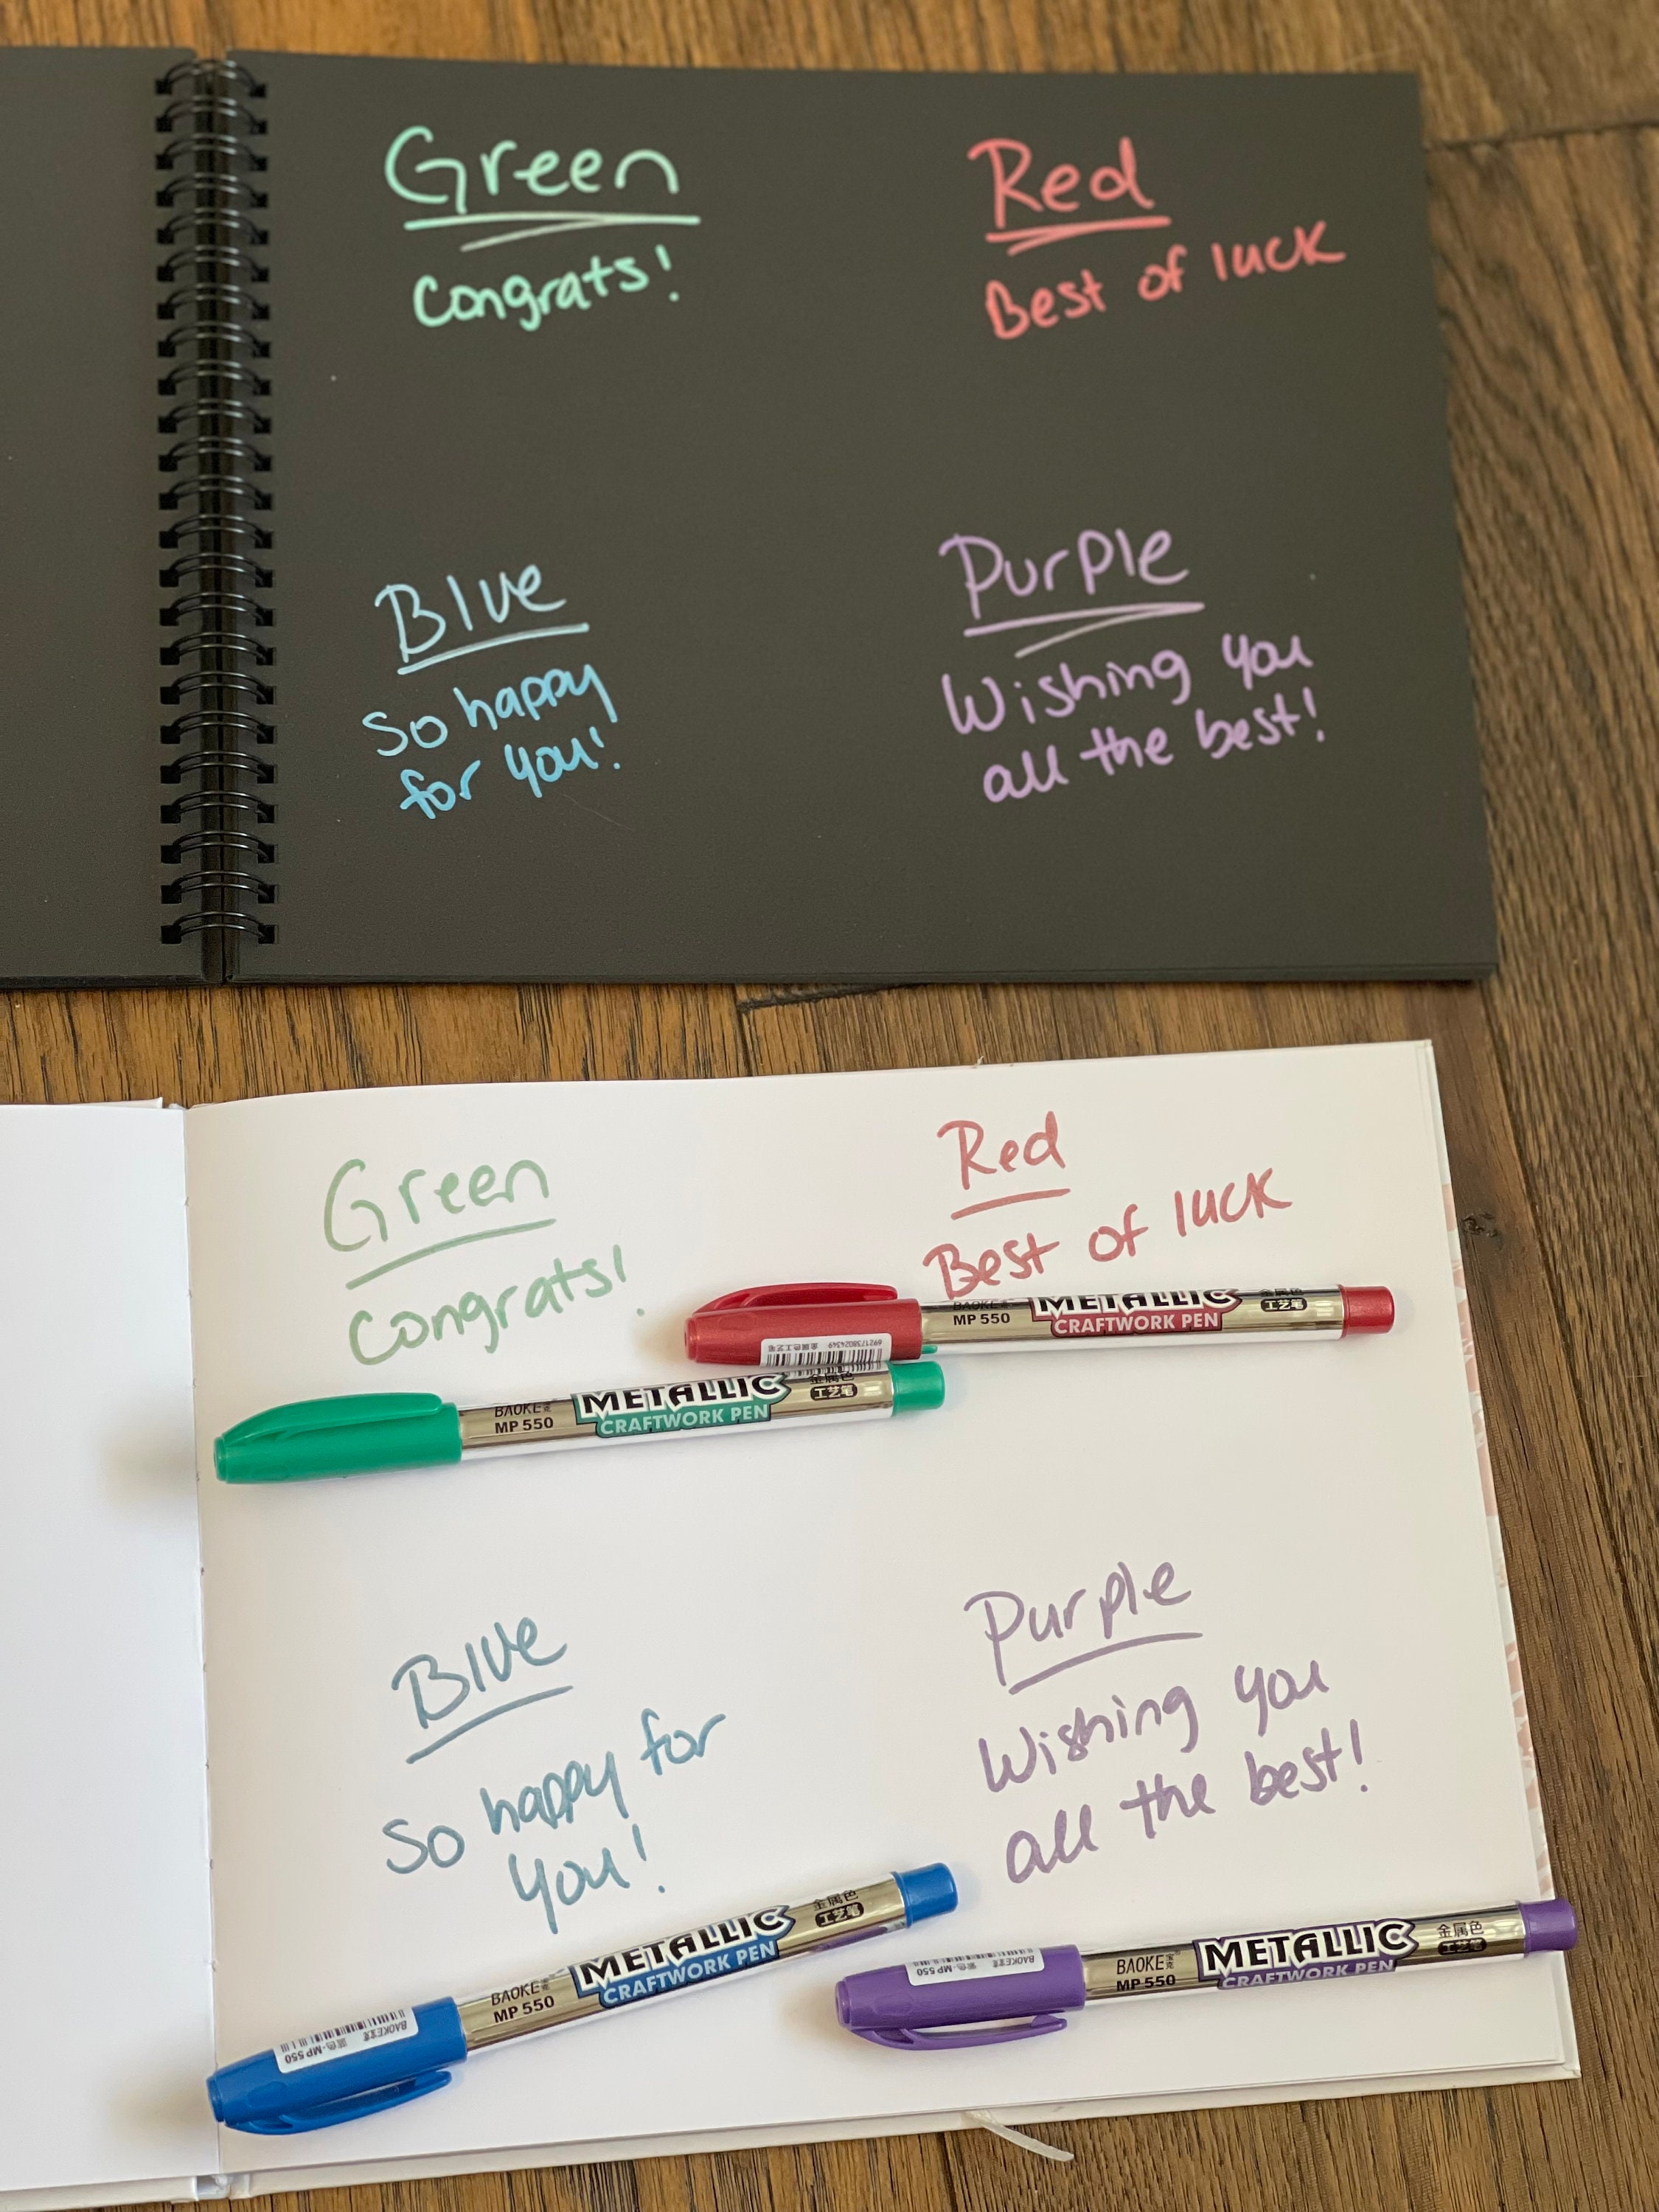 Green
Congrats!
Red
Best of luck
Blue
So happy
for you!
Purple
Wishing you
all the best!
Green
Congrats!
Red
Best of luck
BAOKE
MP 550
METALLIC
CRAFTWORK PEN
工艺笔
6921738024349
金属色工艺笔
BAOKE
MP 550
METALLIC
CRAFTWORK PEN
金属色
工艺笔
Blue
So happy for
you!
Purple
Wishing you
all the best!
BAOKE宝克
MP 550
METALLIC
CRAFTWORK PEN
金属色
工艺笔
BAOKE宝克
蓝色·MP 550
BAOKE宝克
MP 550
METALLIC
CRAFTWORK PEN
金属色
工艺笔
BAOKE宝克
紫色·MP 550